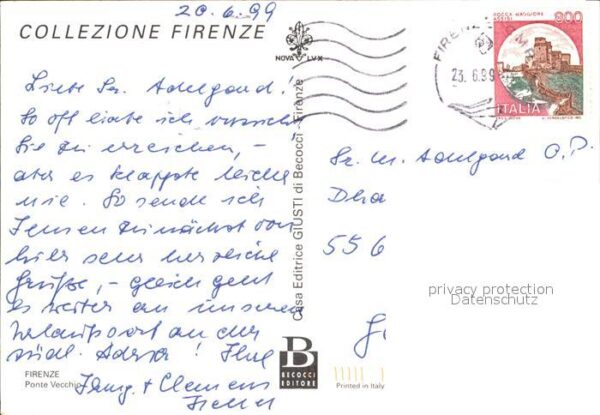 20.6.99
COLLEZIONE FIRENZE
NOVA LVX
Liebe Sr. Adelgond!
So oft habe ich versucht
Sie zu erreichen, –
aber es klappte leider
nie. So sende ich
Ihnen zunächst von
hier sehr herzliche
Grüße, – gleich geht
es weiter an unseren
Urlaubsort an der
südl. Adria! Ihre
+ Clemens
FIRENZE
Ponte Vecchio
Casa Editrice GIUSTI di Becocci - Firenze
B
BECOCCI
EDITORE
Printed in Italy
FIRENZE
23.6.99
ROCCA MAGGIORE
ASSISI
800
ITALIA
Sr. M. Adelgond O.P.
556
privacy protection
Datenschutz